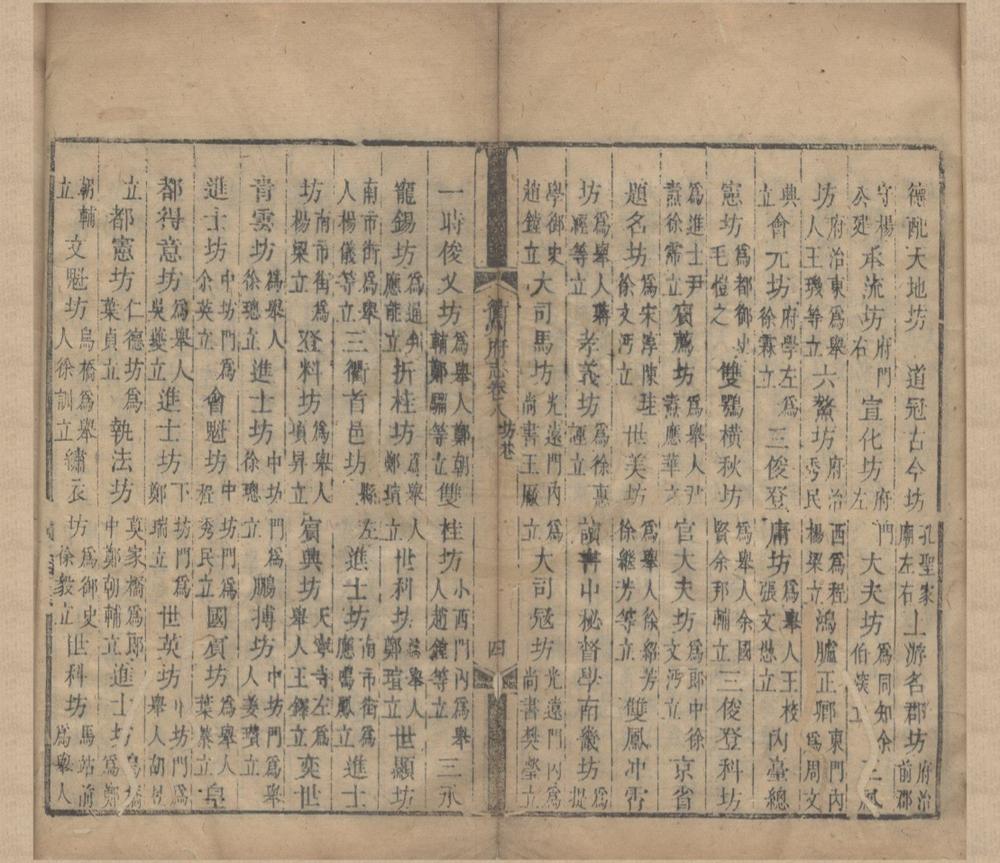 德配天地坊 道冠古今坊 孔聖家廟左右 上游名郡坊 府治前郡
守楊公建 承流坊 府門右 宣化坊 府門左 大夫坊 爲同知余伯深立 三鳳
坊 府治東爲舉人王璣等立 六鰲坊 府治西爲程秀民楊梁立 鴻臚正卿 東門內爲周文
典立 會元坊 府學左爲徐霖立 三俊登庸坊 爲舉人王校張文懋立 內臺總
憲坊 爲都御史毛愷之 雙鶚橫秋坊 爲舉人余國賢余邦輔立 三俊登科坊
爲進士尹燾徐霈立 賓薦坊 爲舉人尹燾應華立 官大夫坊 爲郎中徐文沔立 京省
題名坊 爲宋淳陳珪徐文沔立 世美坊 爲舉人徐紹芳徐繼芳等立 雙鳳冲霄
坊 爲舉人葉經等立 孝義坊 爲徐惠諲立 讀書中秘督學南畿坊 爲提
學御史趙鏜立 大司馬坊 光遠門內尚書王立 大司冦坊 光遠門內爲尚書樊瑩立
衢州府志卷八 坊巷 四
一時俊乂坊 爲舉人鄭朝輔鄭騮等立 雙桂坊 小西門內爲舉人趙鏜等立 三永
寵錫坊 爲通判應能立 折桂坊 爲舉人鄭瑱立 世科坊 爲舉人鄭瑄立 世顯坊
南市街爲舉人楊儀等立 三衢首邑坊 縣左 進士坊 南市街爲應鳴鳳立 進士
坊 南市街爲楊梁立 登科坊 爲舉人項昇立 賓興坊 天寧寺左爲舉人王鐸立 奕世
青雲坊 爲舉人徐璁立 進士坊 中坊門爲徐璁立 鵬摶坊 中坊門爲舉人姜瓚立
進士坊 中坊門爲余英立 會魁坊 中坊門爲程秀民立 國賓坊 爲舉人葉棐立 皇
都得意坊 爲舉人吳夔立 進士坊 下坊門爲鄭瑞立 世英坊 坊門爲舉人胡
立 都憲坊 仁德坊爲葉貞立 執法坊 莫家橋爲郎中鄭朝輔立 進士坊 烏橋爲鄭
朝輔立 文魁坊 烏橋爲舉人徐訓立 繡衣坊 爲御史徐毅立 世科坊 馬站前爲舉人